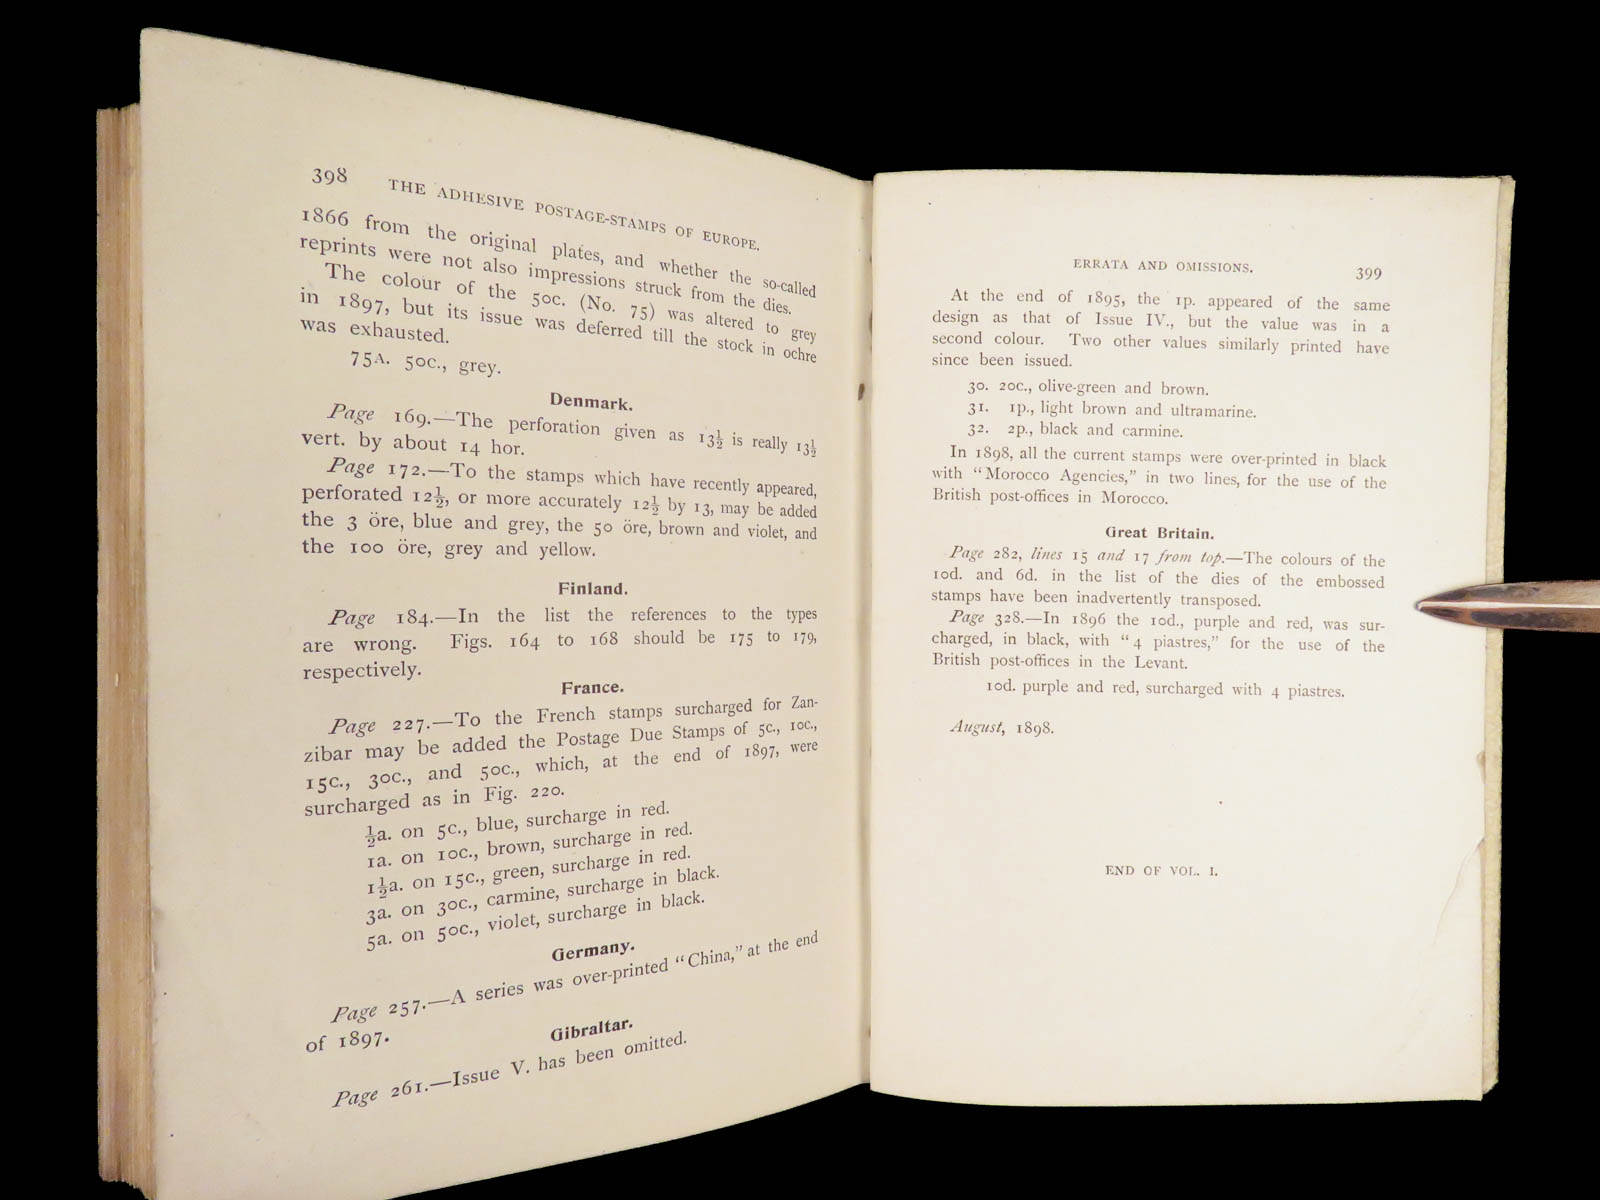 398 THE ADHESIVE POSTAGE-STAMPS OF EUROPE.
1866 from the original plates, and whether the so-called
reprints were not also impressions struck from the dies.
The colour of the 50c. (No. 75) was altered to grey
in 1897, but its issue was deferred till the stock in ochre
was exhausted.
75A. 50c., grey.
Denmark.
Page 169.—The perforation given as 13½ is really 13½
vert. by about 14 hor.
Page 172.—To the stamps which have recently appeared,
perforated 12½, or more accurately 12½ by 13, may be added
the 3 öre, blue and grey, the 50 öre, brown and violet, and
the 100 öre, grey and yellow.
Finland.
Page 184.—In the list the references to the types
are wrong. Figs. 164 to 168 should be 175 to 179,
respectively.
France.
Page 227.—To the French stamps surcharged for Zan-
zibar may be added the Postage Due Stamps of 5c., 10c.,
15c., 30c., and 50c., which, at the end of 1897, were
surcharged as in Fig. 220.
½a. on 5c., blue, surcharge in red.
1a. on 10c., brown, surcharge in red.
1½a. on 15c., green, surcharge in red.
3a. on 30c., carmine, surcharge in black.
5a. on 50c., violet, surcharge in black.
Germany.
Page 257.—A series was over-printed "China," at the end
of 1897.
Gibraltar.
Page 261.—Issue V. has been omitted.
ERRATA AND OMISSIONS. 399
At the end of 1895, the 1p. appeared of the same
design as that of Issue IV., but the value was in a
second colour. Two other values similarly printed have
since been issued.
30. 20c., olive-green and brown.
31. 1p., light brown and ultramarine.
32. 2p., black and carmine.
In 1898, all the current stamps were over-printed in black
with "Morocco Agencies," in two lines, for the use of the
British post-offices in Morocco.
Great Britain.
Page 282, lines 15 and 17 from top.—The colours of the
10d. and 6d. in the list of the dies of the embossed
stamps have been inadvertently transposed.
Page 328.—In 1896 the 10d., purple and red, was sur-
charged, in black, with "4 piastres," for the use of the
British post-offices in the Levant.
10d. purple and red, surcharged with 4 piastres.
August, 1898.
END OF VOL. I.